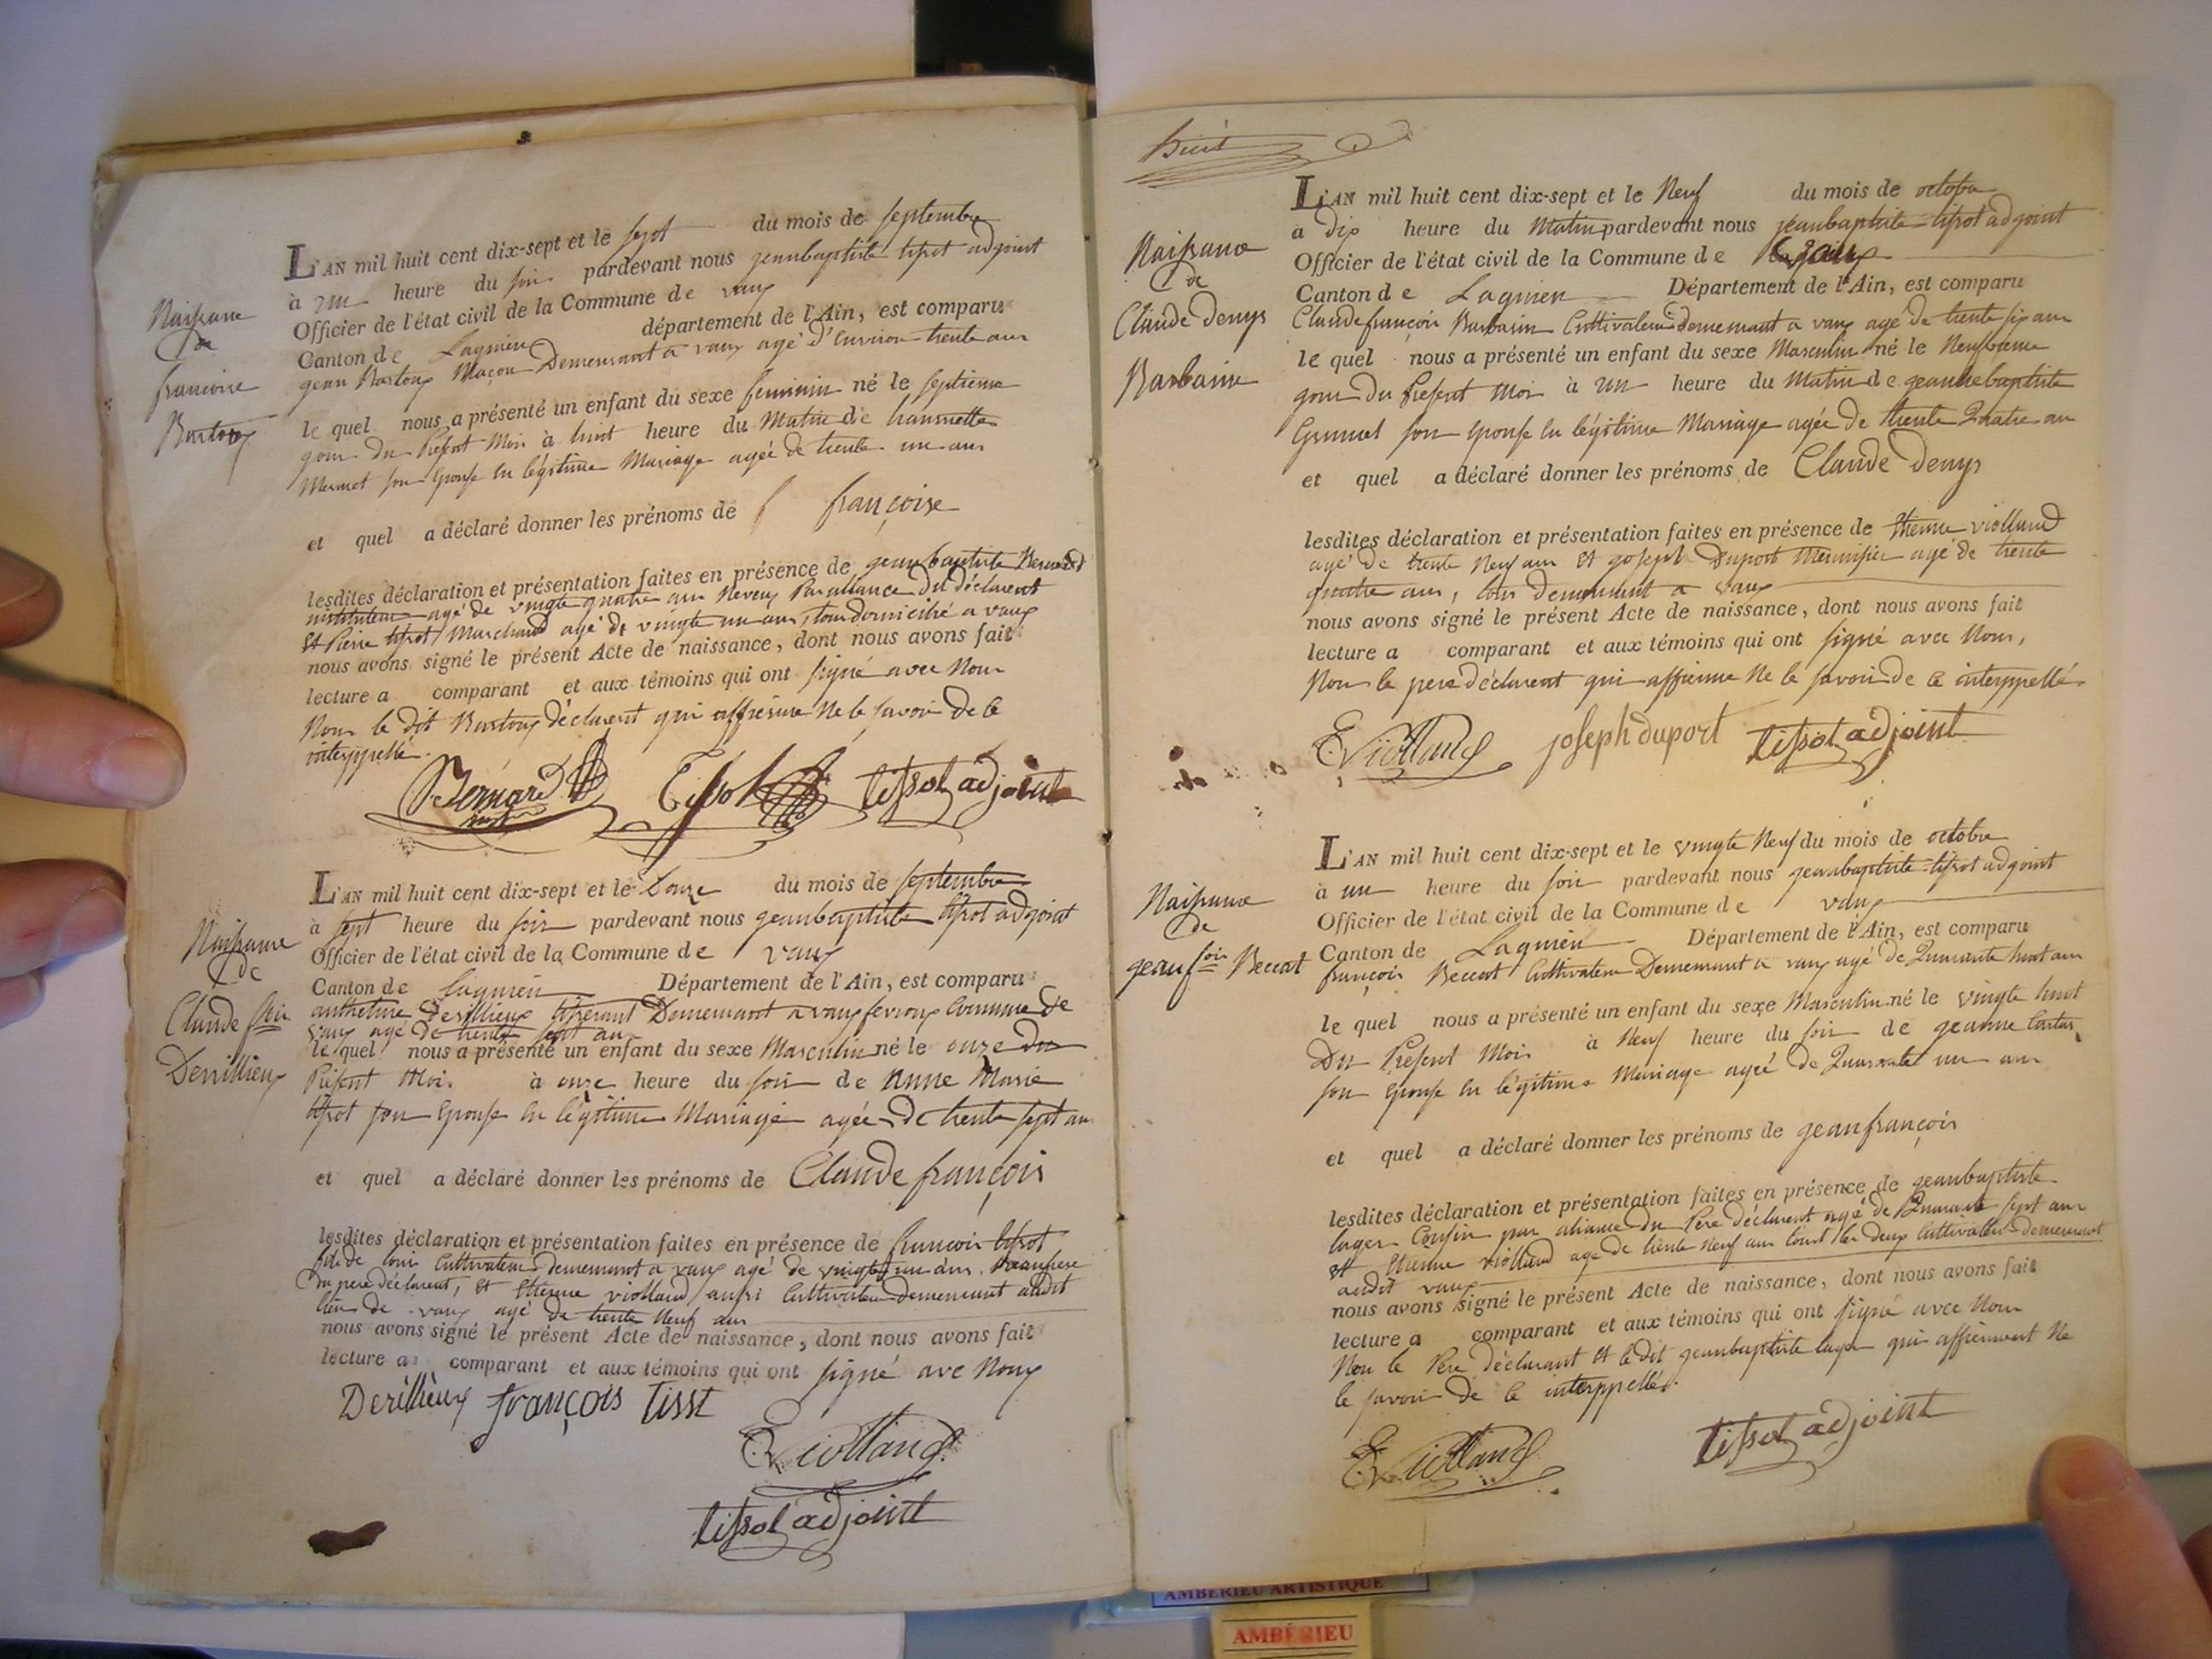 Naissance
de
francoise
Bartoux
L'AN mil huit cent dix-sept et le sept du mois de septembre
à un heure du soir pardevant nous jeanbaptiste tissot adjoint
Officier de l'état civil de la Commune de vaux
Canton de Lagnieu département de l'Ain, est comparu
jean Bartoux Maçon Demeurant a vaux agé d'Environ trente ans
le quel nous a présenté un enfant du sexe feminin né le septieme
jour du Présent Mois à huit heure du Matin de
Mermet son Epouse En légitime Mariage agée de trente un ans
et quel a déclaré donner les prénoms de françoise
lesdites déclaration et présentation faites en présence de jeanbaptiste Bernard
instituteur agé de vingte quatre ans Neveux Par alliance Du déclarent
Et Pierre tissot Marchand agé de vingte un ans, tous domicilié a vaux
nous avons signé le présent Acte de naissance, dont nous avons fait
lecture a comparant et aux témoins qui ont signé avec Nous
Non le dit Bartoux déclarent qui affirme Ne le savoir De ce
interppellé.
Bernard Tissot tissot adjoint
Naissance
de
Claude fois
Derillieux
L'AN mil huit cent dix-sept et le Douze du mois de septembre
à sept heure du soir pardevant nous jeanbaptiste tissot adjoint
Officier de l'état civil de la Commune de vaux
Canton de Lagnieu Département de l'Ain, est comparu
anthelme Derillieux tisserant Demeurant a vaux fevroux Commune de
vaux agé de trente sept ans
le quel nous a présenté un enfant du sexe Masculin né le onze du
Présent Mois à onze heure du soir de Anne Marie
tissot son Epouse En légitime Mariage agée de trente sept ans
et quel a déclaré donner les prénoms de Claude françois
lesdites déclaration et présentation faites en présence de francois tissot
fils de Cultivateur demeurant a vaux agé de vingte un ans, Beaufrere
Du pere déclarent, Et Etienne violland aussi Cultivateur demeurant audit
lieu de vaux agé de trente Neuf ans
nous avons signé le présent Acte de naissance, dont nous avons fait
lecture a comparant et aux témoins qui ont signé avec Nous
Derillieux françois Tisst
E Violland
tissot adjoint
huit
Naissance
de
Claude Denys
Barbarin
L'AN mil huit cent dix-sept et le Neuf du mois de octobre
à dix heure du Matin pardevant nous jeanbaptiste tissot adjoint
Officier de l'état civil de la Commune de vaux
Canton de Lagnieu Département de l'Ain, est comparu
Claudefrançois Barbarin Cultivateur demeurant a vaux agé de trente six ans
le quel nous a présenté un enfant du sexe Masculin né le Neufvieme
jour du Présent Moi à un heure du Matin de jeannebaptiste
Grumet son Epouse En légitime Mariage agée de trente Quatre an
et quel a déclaré donner les prénoms de Claude Denys
lesdites déclaration et présentation faites en présence de Etienne violland
agé de trente Neuf ans Et joseph Duport Mennisier agé de trente
quatre ans, tous demeurant a vaux
nous avons signé le présent Acte de naissance, dont nous avons fait
lecture a comparant et aux témoins qui ont signé avec Nous,
Non le pere déclarent qui affirme Ne le savoir de ce interppellé.
E Violland joseph duport tissot adjoint
Naissance
de
jean fois Beccat
L'AN mil huit cent dix-sept et le vingte Neuf du mois de octobre
à un heure du soir pardevant nous jeanbaptiste tissot adjoint
Officier de l'état civil de la Commune de vaux
Canton de Lagnieu Département de l'Ain, est comparu
françois Beccat Cultivateur Demeurant a vaux agé de Quarante huit ans
le quel nous a présenté un enfant du sexe Masculin né le vingte huit
Du Présent Mois à Neuf heure du soir de jeanne
son Epouse En légitime Mariage agée de Quarante un ans
et quel a déclaré donner les prénoms de jeanfrançois
lesdites déclaration et présentation faites en présence de jeanbaptiste
luger Cousin par aliance du Pere déclarent agé de Quarante sept ans
et Etienne violland age de trente Neuf ans tout les deux Cultivateur demeurent
audit vaux
nous avons signé le présent Acte de naissance, dont nous avons fait
lecture a comparant et aux témoins qui ont signé avec Nous
Non le Pere déclarant Et le dit jeanbaptiste luger qui affirment Ne
le savoir de ce interppellés.
E Violland tissot adjoint
AMBÉRIEU ARTISTIQUE
AMBÉRIEU